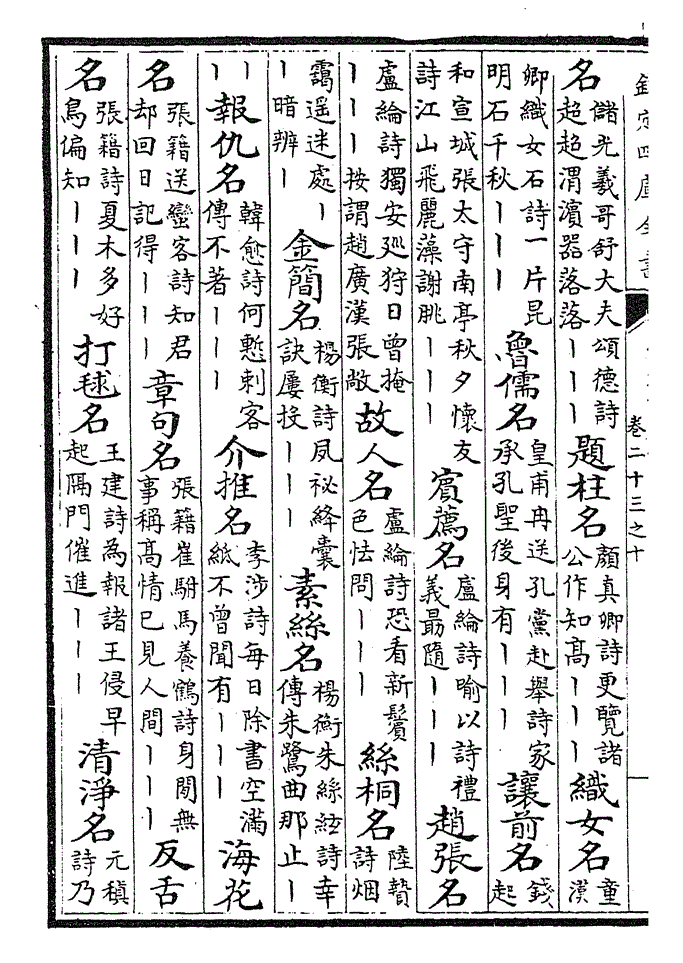 欽定四庫全書
卷二十三之十
名儲光羲哥舒大夫頌德詩超超渭濱器落落丨丨丨題柱名顔真卿詩更覽諸公作知高丨丨丨織女名童漢
卿織女石詩一片昆明石千秋丨丨丨魯儒名皇甫冉送孔黨赴舉詩家承孔聖後身有丨丨丨讓前名錢起
和宣城張太守南亭秋夕懷友詩江山飛麗藻謝朓丨丨丨賓薦名盧綸詩喻以詩禮義最隨丨丨丨趙張名
盧綸詩獨安巡狩日曾掩丨丨丨按謂趙廣漢張敞故人名盧綸詩恐看新鬢色怯問丨丨丨絲桐名陸贄詩烟
靄遥迷處丨丨暗辨丨金簡名楊衡詩夙祕絳囊訣屢投丨丨丨素絲名楊衡朱絲絃詩幸傳朱鷺曲那止丨
丨丨報仇名韓愈詩何慙刺客傳不著丨丨丨介推名李涉詩每日除書空滿紙不曾聞有丨丨丨海花
名張籍送蠻客詩知君却回日記得丨丨丨章句名張籍崔駙馬養鶴詩身閒無事稱高情已見人間丨丨丨反舌
名張籍詩夏木多好鳥偏知丨丨丨打毬名王建詩為報諸王侵早起隔門催進丨丨丨清淨名元稹詩乃